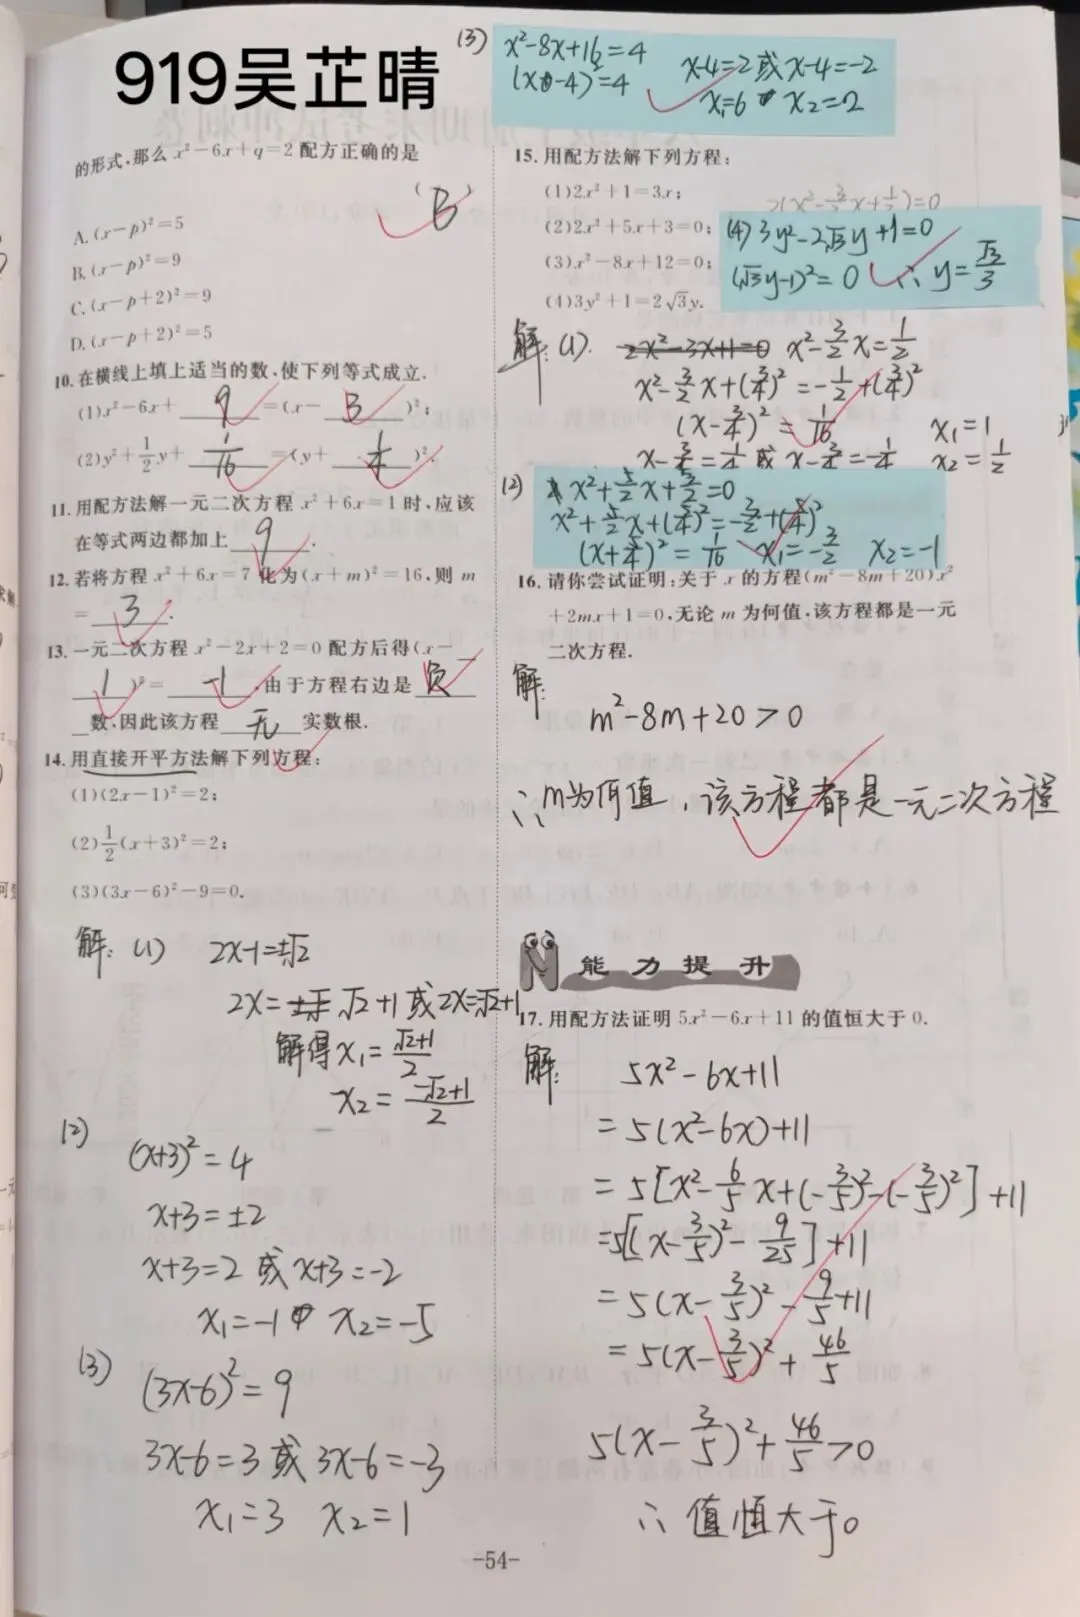 919吴芷晴
的形式,那么 x²-6x+q=2 配方正确的是
( B )
A. (x-p)²=5
B. (x-p)²=9
C. (x-p+2)²=9
D. (x-p+2)²=5
10. 在横线上填上适当的数,使下列等式成立.
(1)x²-6x+ 9 =(x- 3 )²;
(2)y²+1/2y+ 1/16 =(y+ 1/4 )².
11. 用配方法解一元二次方程 x²+6x=1 时,应该
在等式两边都加上 9 .
12. 若将方程 x²+6x=7 化为(x+m)²=16,则 m
= 3 .
13. 一元二次方程 x²-2x+2=0 配方后得(x-
1 )²= -1 ,由于方程右边是 负
数,因此该方程 无 实数根.
14. 用直接开平方法解下列方程:
(1)(2x-1)²=2;
(2)1/2(x+3)²=2;
(3)(3x-6)²-9=0.
解: (1) 2x-1=±√2
2x=√2+1 或2x=-√2+1
解得x₁=(√2+1)/2
x₂=(-√2+1)/2
(2)
(x+3)²=4
x+3=±2
x+3=2 或 x+3=-2
x₁=-1 x₂=-5
(3)
(3x-6)²=9
3x-6=3 或 3x-6=-3
x₁=3 x₂=1
(3) x²-8x+16=4
(x-4)²=4 x-4=2 或 x-4=-2
x₁=6 x₂=2
15. 用配方法解下列方程:
(1)2x²+1=3x;
(2)2x²+5x+3=0;
(3)x²-8x+12=0;
(4)3y²+1=2√3y.
2(x²-3/2x+1/2)=0
(4) 3y²-2√3y+1=0
(√3y-1)²=0 ∴y=√3/3
解: (1). 2x²-3x+1=0 x²-3/2x=1/2
x²-3/2x+(3/4)²=-1/2+(3/4)²
(x-3/4)²=1/16 x₁=1
x-3/4=1/4 或 x-3/4=-1/4 x₂=1/2
(2) x²+5/2x+3/2=0
x²+5/2x+(5/4)²=-3/2+(5/4)²
(x+5/4)²=1/16 x₁=-3/2 x₂=-1
16. 请你尝试证明:关于 x 的方程(m²-8m+20)x²
+2mx+1=0,无论 m 为何值,该方程都是一元
二次方程.
解:
m²-8m+20>0
∴m为何值,该方程都是一元二次方程
能力提升
17. 用配方法证明 5x²-6x+11 的值恒大于 0.
解: 5x²-6x+11
=5(x²-6x)+11
=5[x²-6/5x+(-3/5)²-(-3/5)²]+11
=5[(x-3/5)²-9/25]+11
=5(x-3/5)²-9/5+11
=5(x-3/5)²+46/5
5(x-3/5)²+46/5>0
∴值恒大于0
-54-